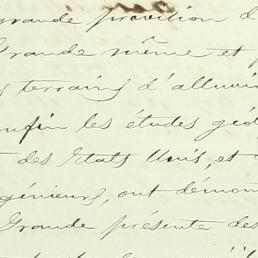 grande provision d
Grande même et p
s terrains d'alluvi
enfin les études géo
des Etats Unis, et
génieurs, ont démon
Grande présente des